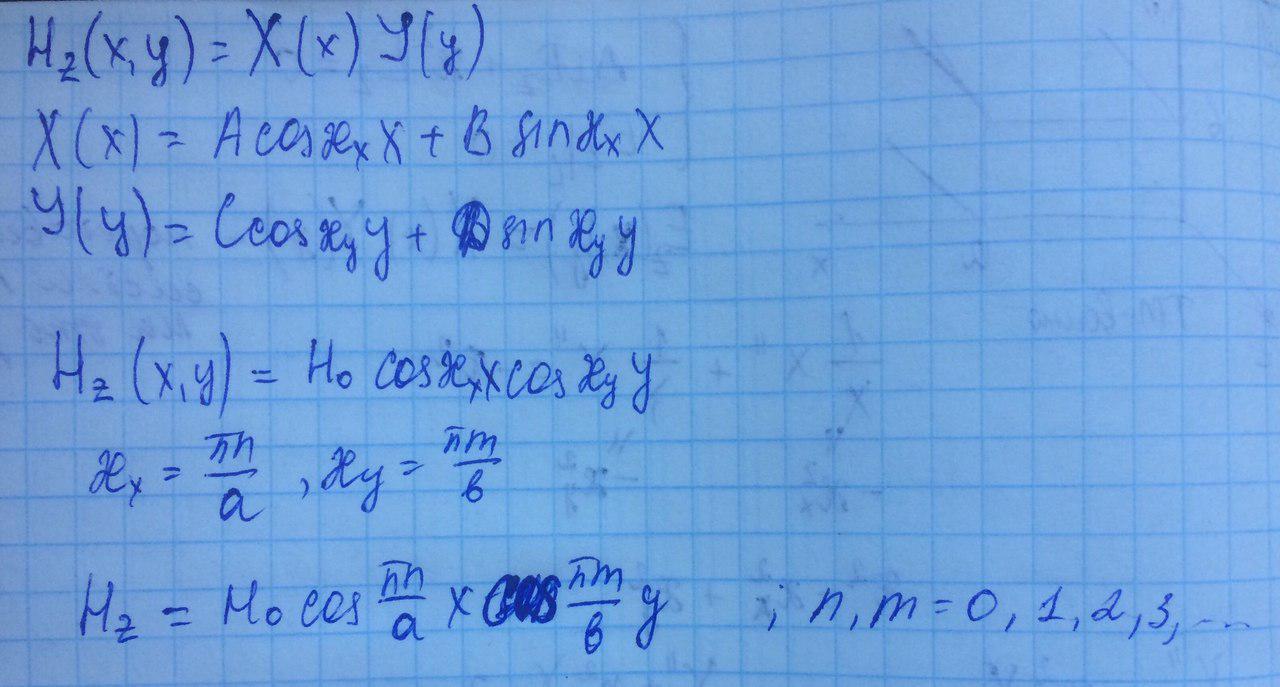 H_z(x,y) = X(x) Y(y)
X(x) = A cos ϰ_x x + B sin ϰ_x x
Y(y) = C cos ϰ_y y + D sin ϰ_y y
H_z (x,y) = H_0 cos ϰ_x x cos ϰ_y y
ϰ_x = πn/a , ϰ_y = πm/b
H_z = H_0 cos πn/a x cos πm/b y ; n, m = 0, 1, 2, 3, ...